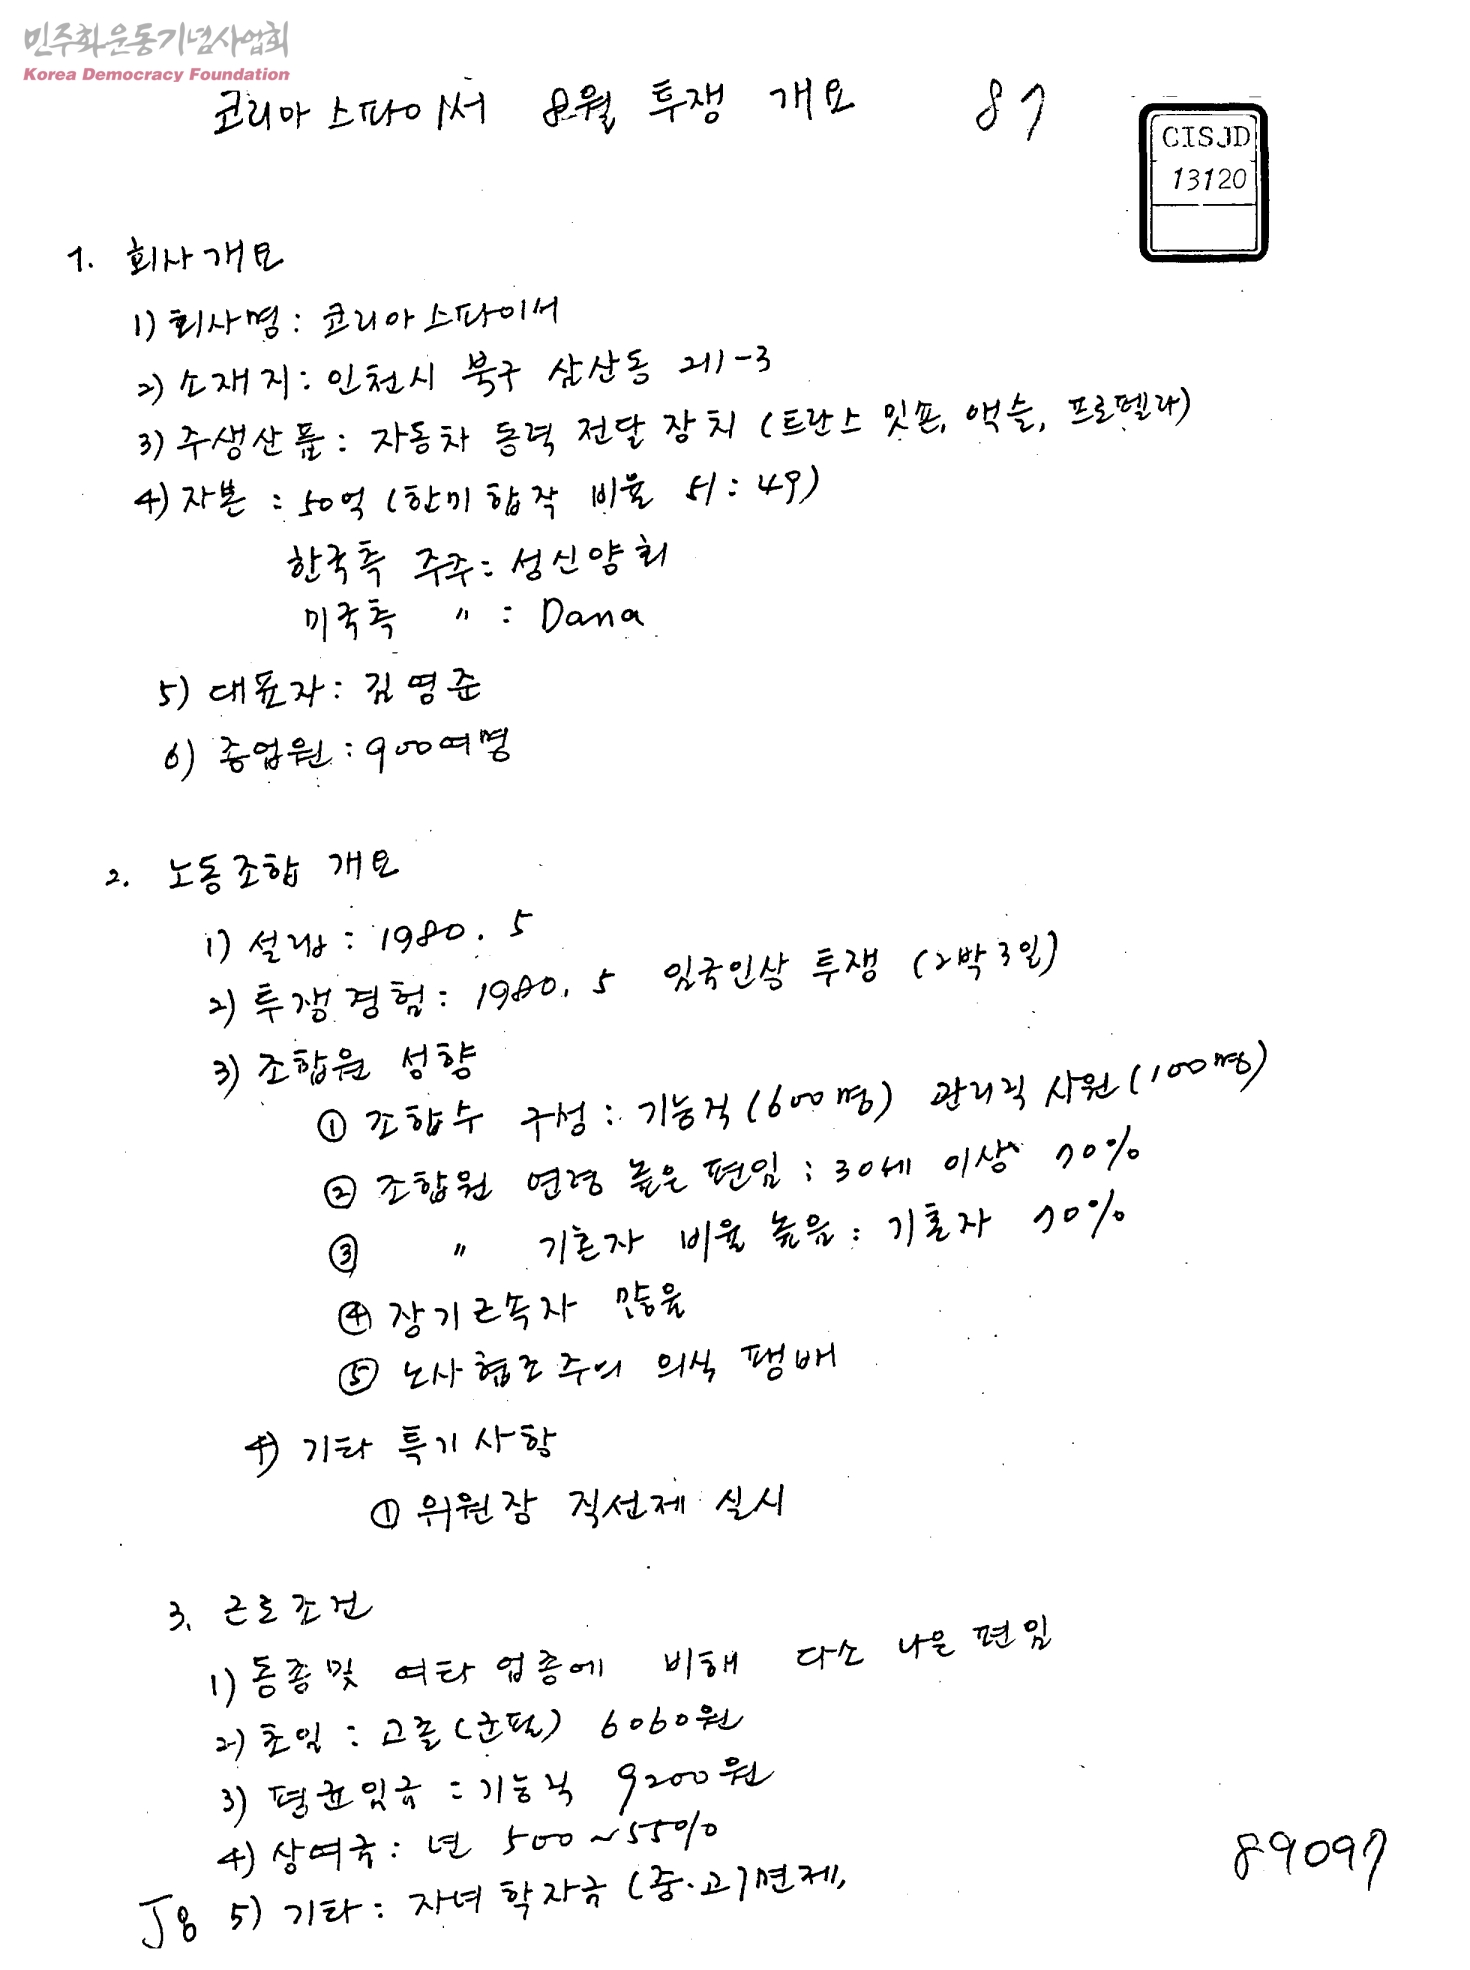 민주화운동기념사업회
Korea Democracy Foundation
코리아스파이서 8월 투쟁 개요 87
CISJD
13120
1. 회사개요
1) 회사명 : 코리아스파이서
2) 소재지 : 인천시 북구 삼산동 211-3
3) 주생산품 : 자동차 동력 전달 장치 (트란스 밋숀, 액슬, 프로펠라)
4) 자본 : 50억 (한미 합작 비율 51 : 49)
한국측 주주 : 성신양회
미국측 〃 : Dana
5) 대표자 : 김영준
6) 종업원 : 900여명
2. 노동조합 개요
1) 설립 : 1980. 5
2) 투쟁경험 : 1980. 5 임금인상 투쟁 (2박 3일)
3) 조합원 성향
① 조합수 구성 : 기능직 (600명) 관리직 사원 (100명)
② 조합원 연령 높은 편임 : 30세 이상 70%
③ 〃 기혼자 비율 높음 : 기혼자 70%
④ 장기근속자 많음
⑤ 노사협조주의 의식 팽배
4) 기타 특기사항
① 위원장 직선제 실시
3. 근로조건
1) 동종및 여타 업종에 비해 다소 나은 편임
2) 초임 : 고졸 (군필) 6060원
3) 평균임금 : 기능직 9200원
4) 상여금 : 년 500 ~ 550%
J8 5) 기타 : 자녀 학자금 (중·고) 면제,
89097